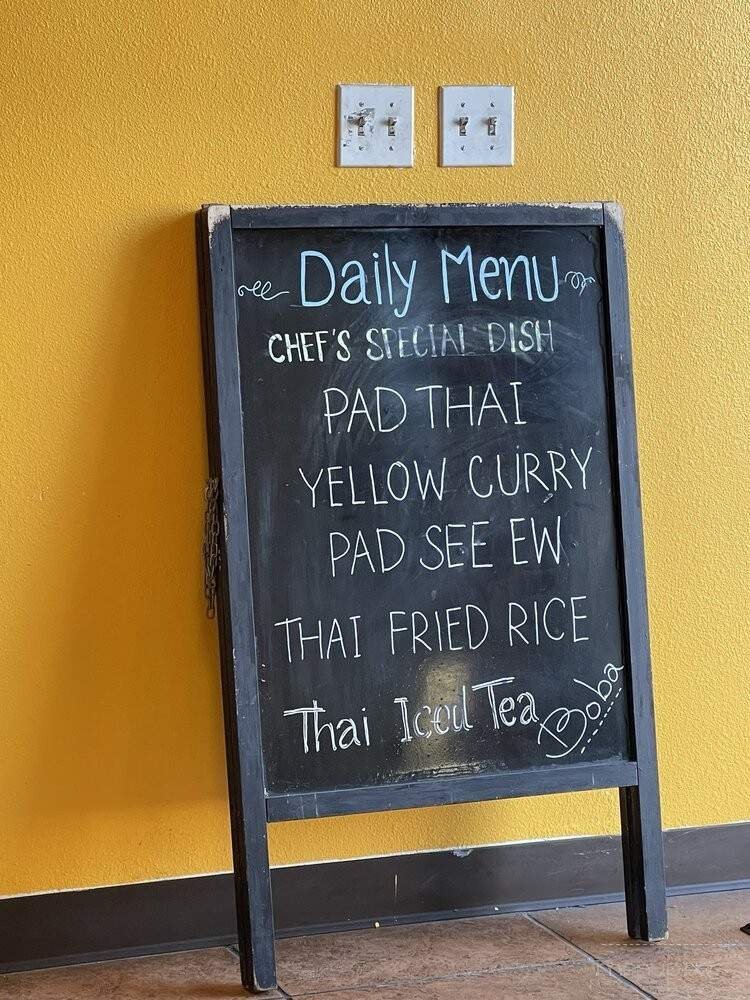 Daily Menu
CHEF'S SPECIAL DISH
PAD THAI
YELLOW CURRY
PAD SEE EW
THAI FRIED RICE
Thai Iced Tea
Boba